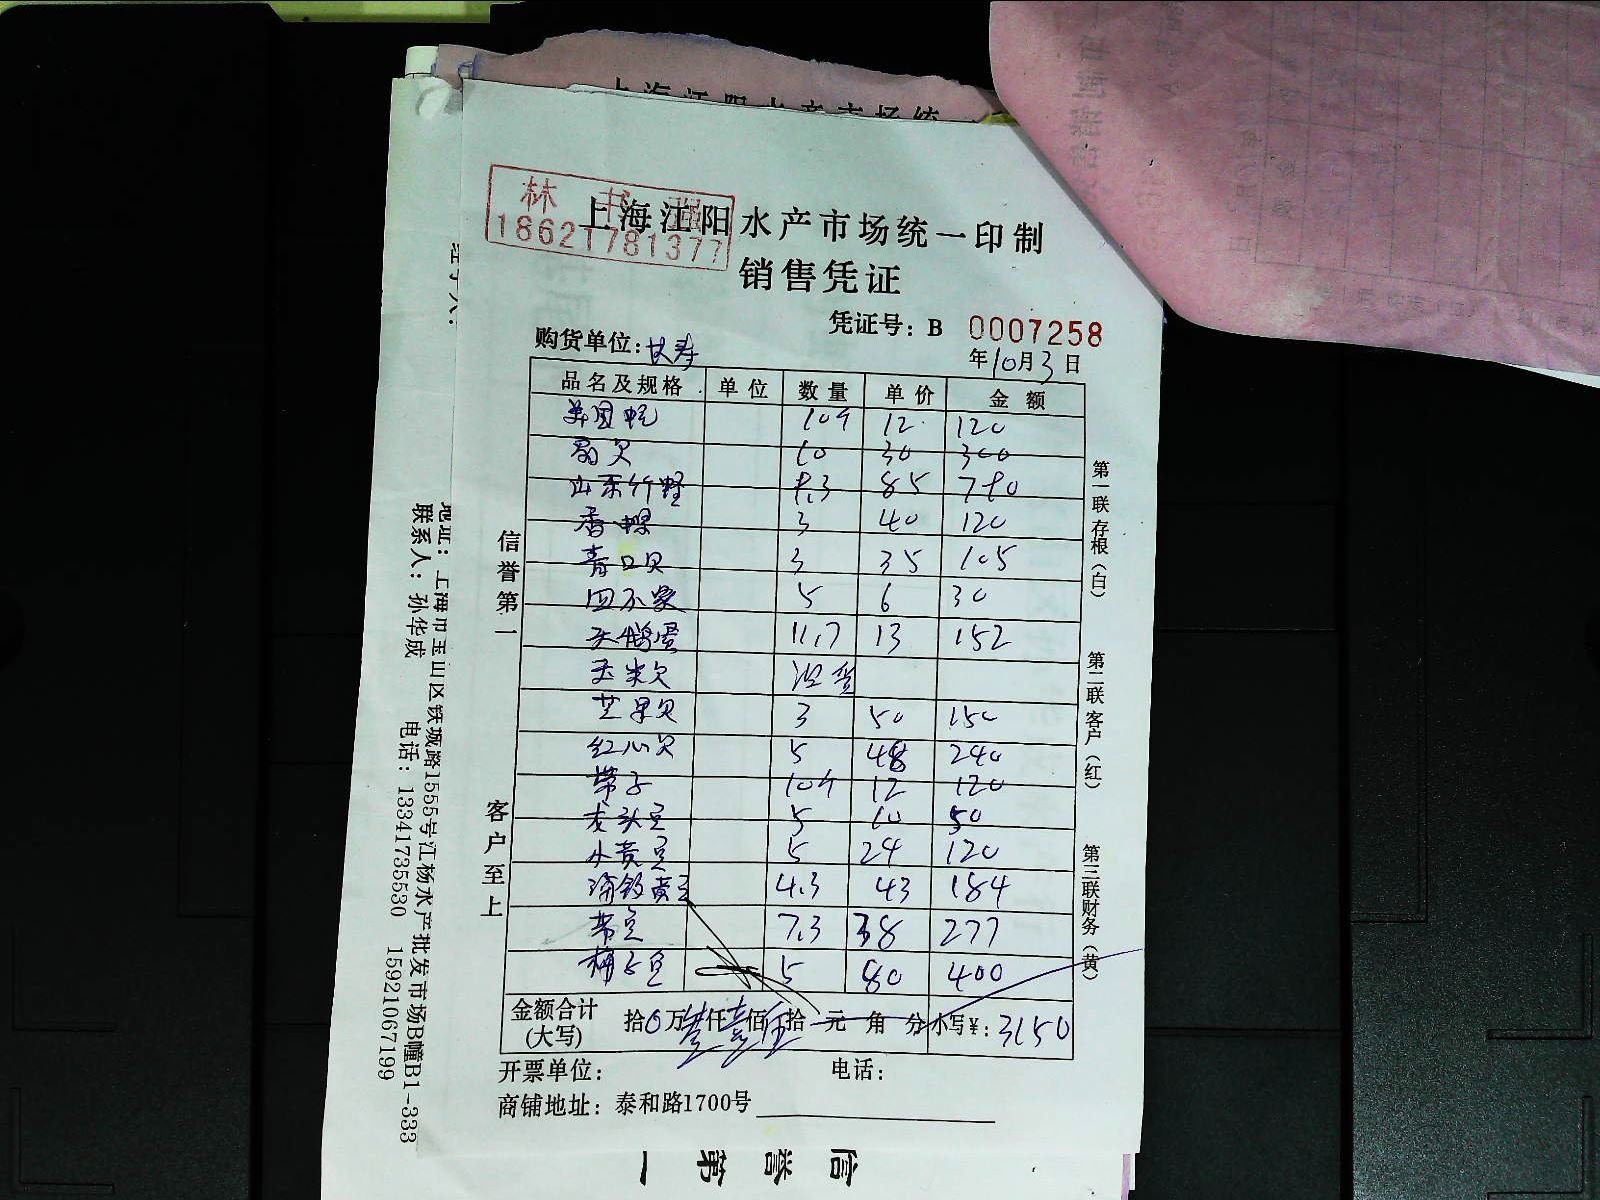 上海江阳水产市场统
林书强
18621781377
上海江阳水产市场统一印制
销售凭证
凭证号：B 0007258
购货单位：
年10月3日
品名及规格 单位 数量 单价 金额
美国蚬 10个 12 120
扇贝 10 30 300
山东竹蛏 9.3 85 790
香螺 3 40 120
青口贝 3 35 105
四不象 5 6 30
天鹅蛋 11.7 13 152
玉米贝 没货
芒果贝 3 50 150
红心贝 5 48 240
带子 10个 12 120
龙头豆 5 10 50
小黄豆 5 24 120
黄豆 4.3 43 184
带豆 7.3 38 277
梅子豆 5 80 400
金额合计（大写） 拾0万叁仟壹佰伍拾元角分 小写¥：3150
开票单位： 电话：
商铺地址：泰和路1700号
信誉第一
客户至上
第一联存根（白）
第二联客户（红）
第三联财务（黄）
经手人：
地址：上海市宝山区铁城路1555号江杨水产批发市场B幢B1-333
联系人：孙华成 电话：13341735530 15921067199
信誉第一